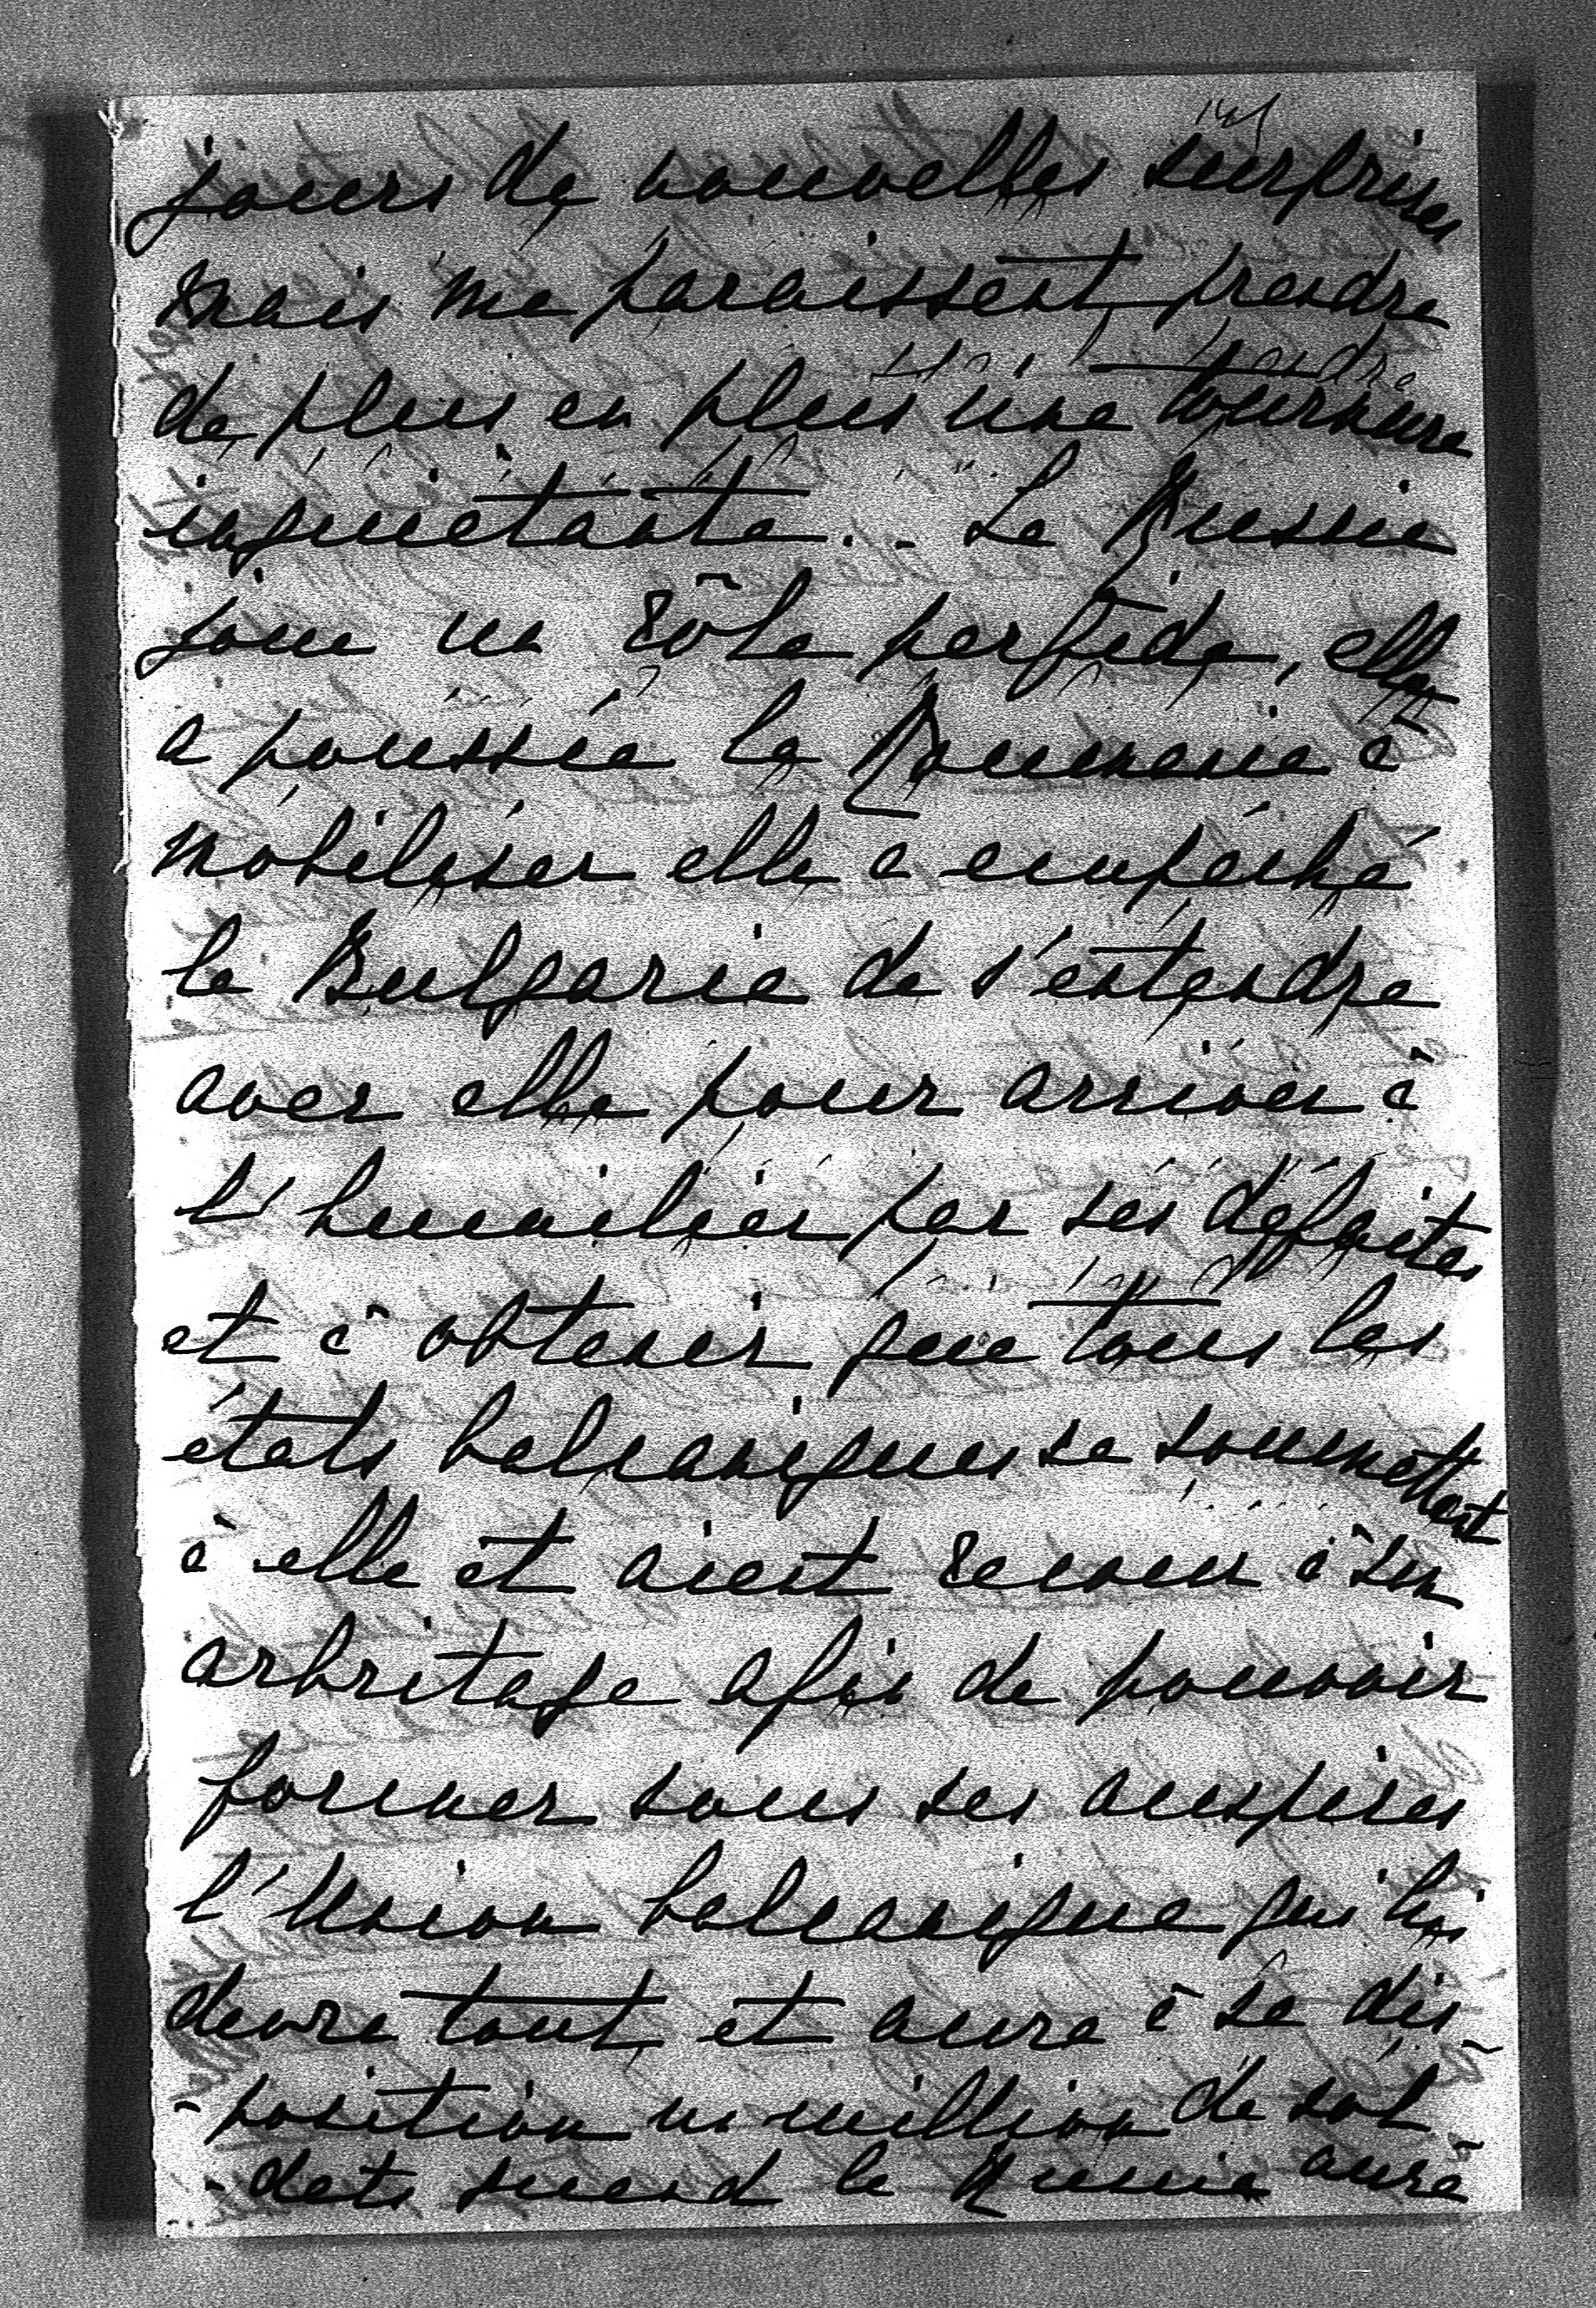 jours de nouvelles surprises
mais me paraissent prendre
de plus en plus une tournure
inquiétante... La Russie
joue un rôle perfide, elle
a poussée la Roumanie à
mobiliser elle a empéché
la Bulgarie de s'entendre
avec elle pour arriver à
l'humilier par ses défaites
et à obtenir que tous les
états balcaniques se soumettent
à elle et aient recour à son
arbritage afin de pouvoir
former sous ses auspices
l'Union balcanique qui lui
devra tout et aura à sa dis-
-position un million de sol-
-dats quand la Russie aura